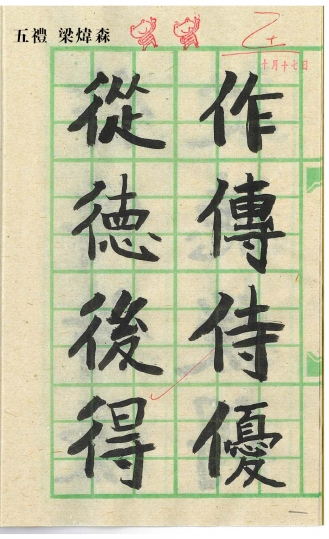 五禮 梁煒森
十月十七日
作傳侍優
從德後得